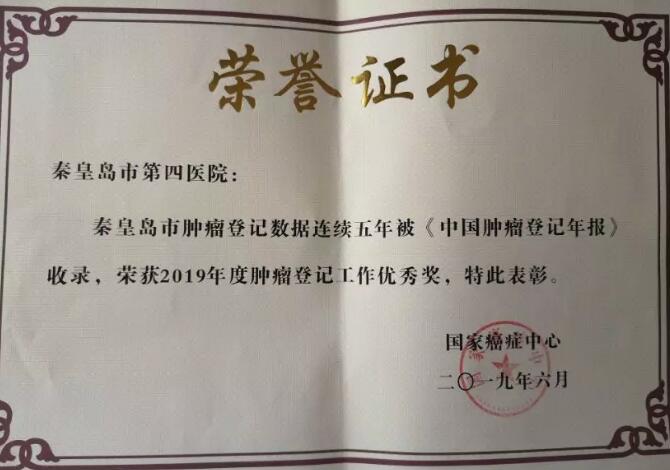 荣誉证书
秦皇岛市第四医院：
秦皇岛市肿瘤登记数据连续五年被《中国肿瘤登记年报》
收录，荣获2019年度肿瘤登记工作优秀奖，特此表彰。
国家癌症中心
二〇一九年六月